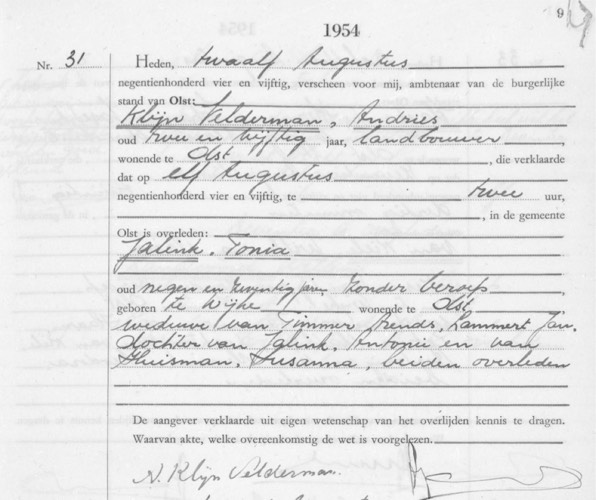 1954
9
Nr. 31 Heden, twaalf Augustus
negentienhonderd vier en vijftig, verscheen voor mij, ambtenaar van de burgerlijke
stand van Olst:
Klijn Velderman, Andries
oud twee en vijftig jaar, landbouwer,
wonende te Olst, die verklaarde
dat op elf Augustus
negentienhonderd vier en vijftig, te twee uur,
, in de gemeente
Olst is overleden:
Jalink, Tonia
oud negen en zeventig jaren, zonder beroep
geboren te Wijhe wonende te Olst,
weduwe van Timmer Arends, Lammert Jan,
dochter van Jalink, Antonie en van
Huisman, Susanna, beiden overleden
De aangever verklaarde uit eigen wetenschap van het overlijden kennis te dragen.
Waarvan akte, welke overeenkomstig de wet is voorgelezen.
A. Klijn Velderman.